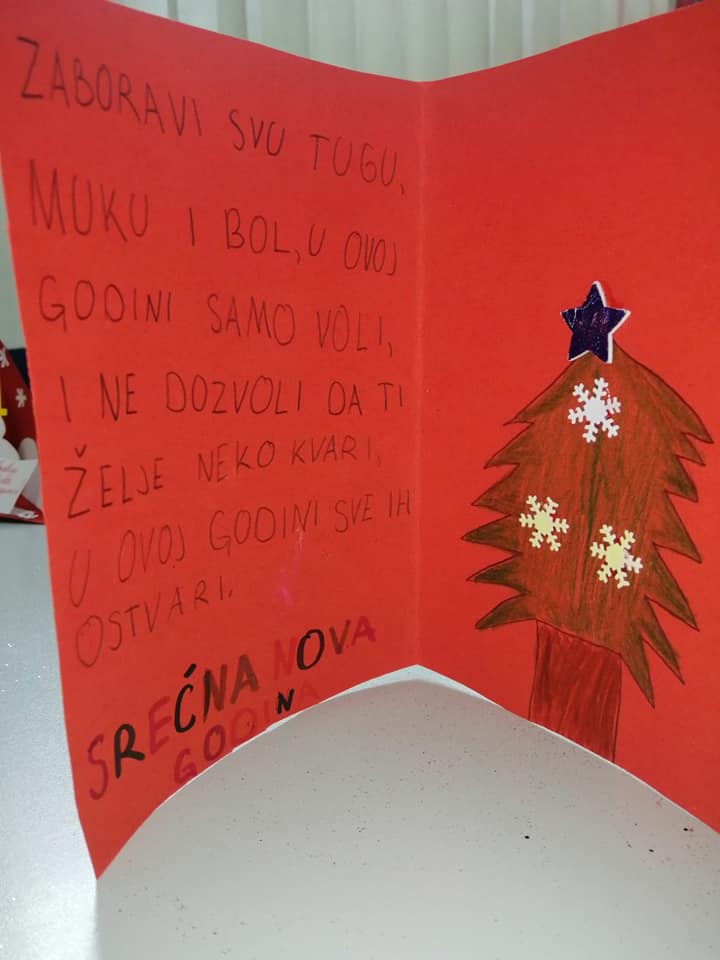 ZABORAVI SVU TUGU,
MUKU I BOL, U OVOJ
GODINI SAMO VOLI,
I NE DOZVOLI DA TI
ŽELJE NEKO KVARI,
U OVOJ GODINI SVE IH
OSTVARI.
SREĆNA NOVA
GODINA